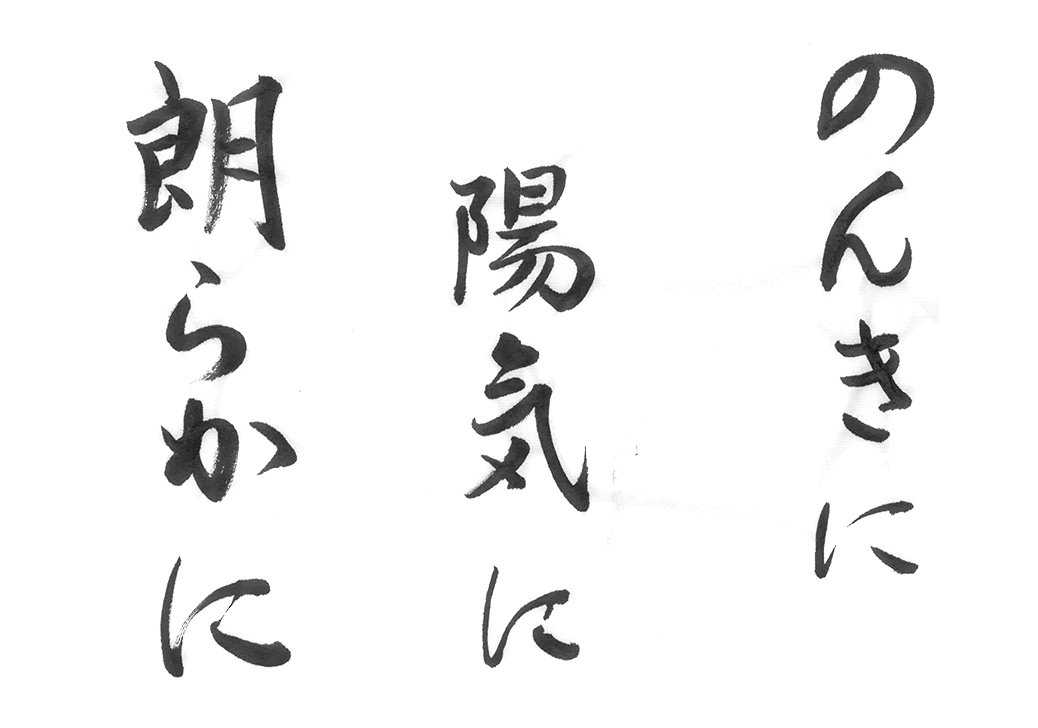 のんきに
陽気に
朗らかに